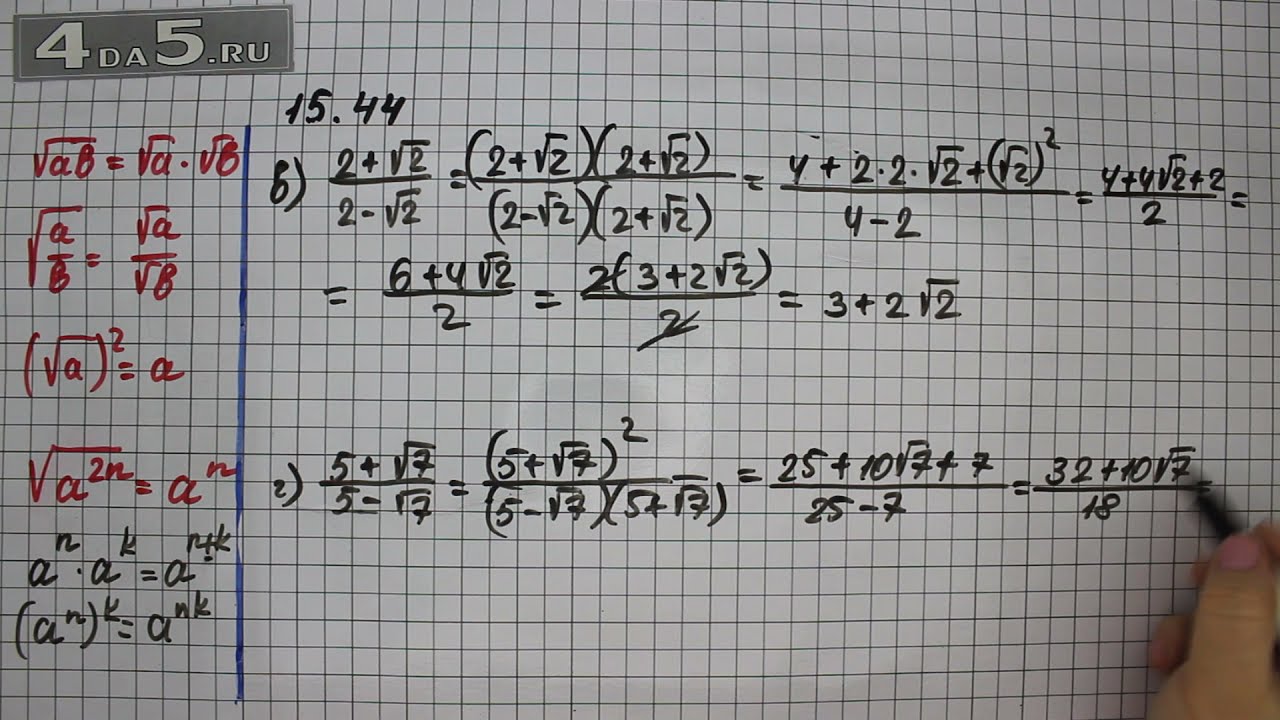 4DA5.RU
15.44
√ab = √a · √b
√(a/b) = √a/√b
(√a)² = a
√(a²ⁿ) = aⁿ
aⁿ · aᵏ = aⁿ⁺ᵏ
(aⁿ)ᵏ = aⁿᵏ
в) (2+√2)/(2-√2) = (2+√2)(2+√2)/((2-√2)(2+√2)) = (4+2·2·√2+(√2)²)/(4-2) = (4+4√2+2)/2 =
= (6+4√2)/2 = 2(3+2√2)/2 = 3+2√2
г) (5+√7)/(5-√7) = (5+√7)²/((5-√7)(5+√7)) = (25+10√7+7)/(25-7) = (32+10√7)/18 =